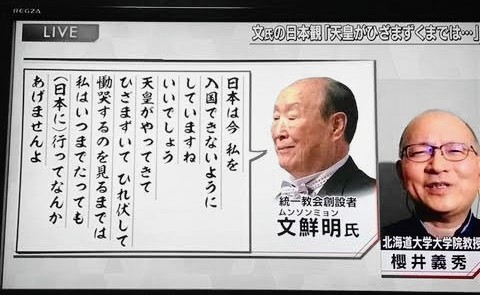 REGZA
LIVE
文氏の日本観「天皇がひざまずくまでは…」
日本は今 私を
入国できないように
していますね
いいでしょう
天皇がやってきて
ひざまずいて ひれ伏して
慟哭するのを見るまでは
私はいつまでたっても
(日本に)行ってなんか
あげませんよ
統一教会創設者
ムンソンミョン
文鮮明氏
北海道大学大学院教授
櫻井義秀